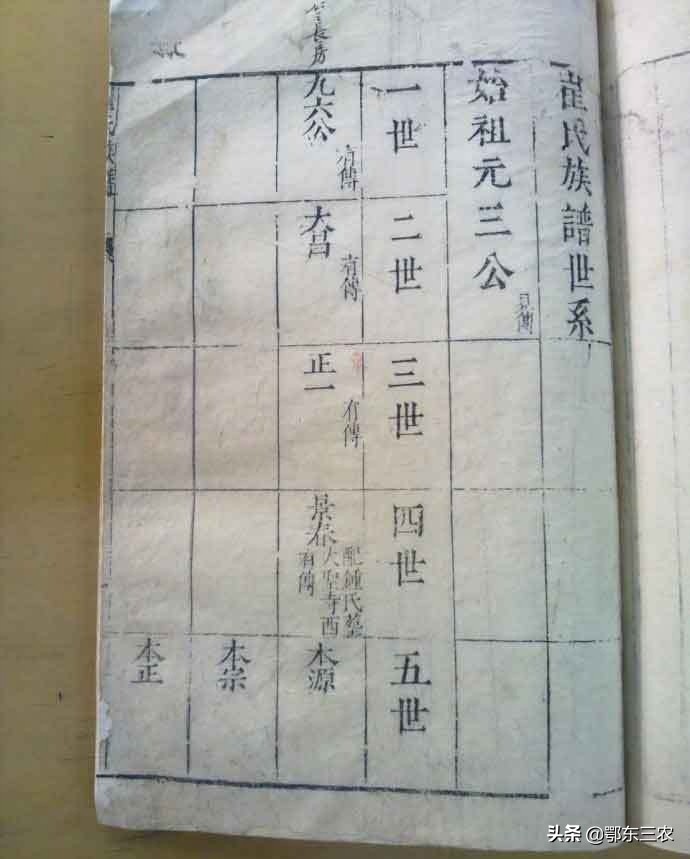 崔氏族譜世系
始祖元三公
見傳
一世
二世
三世
四世
五世
長房
九六公
有傳
大昌
有傳
正一
有傳
景春
配鍾氏葬
大聖寺西
有傳
本源
本宗
本正
氏族譜
头条 @鄂东三农